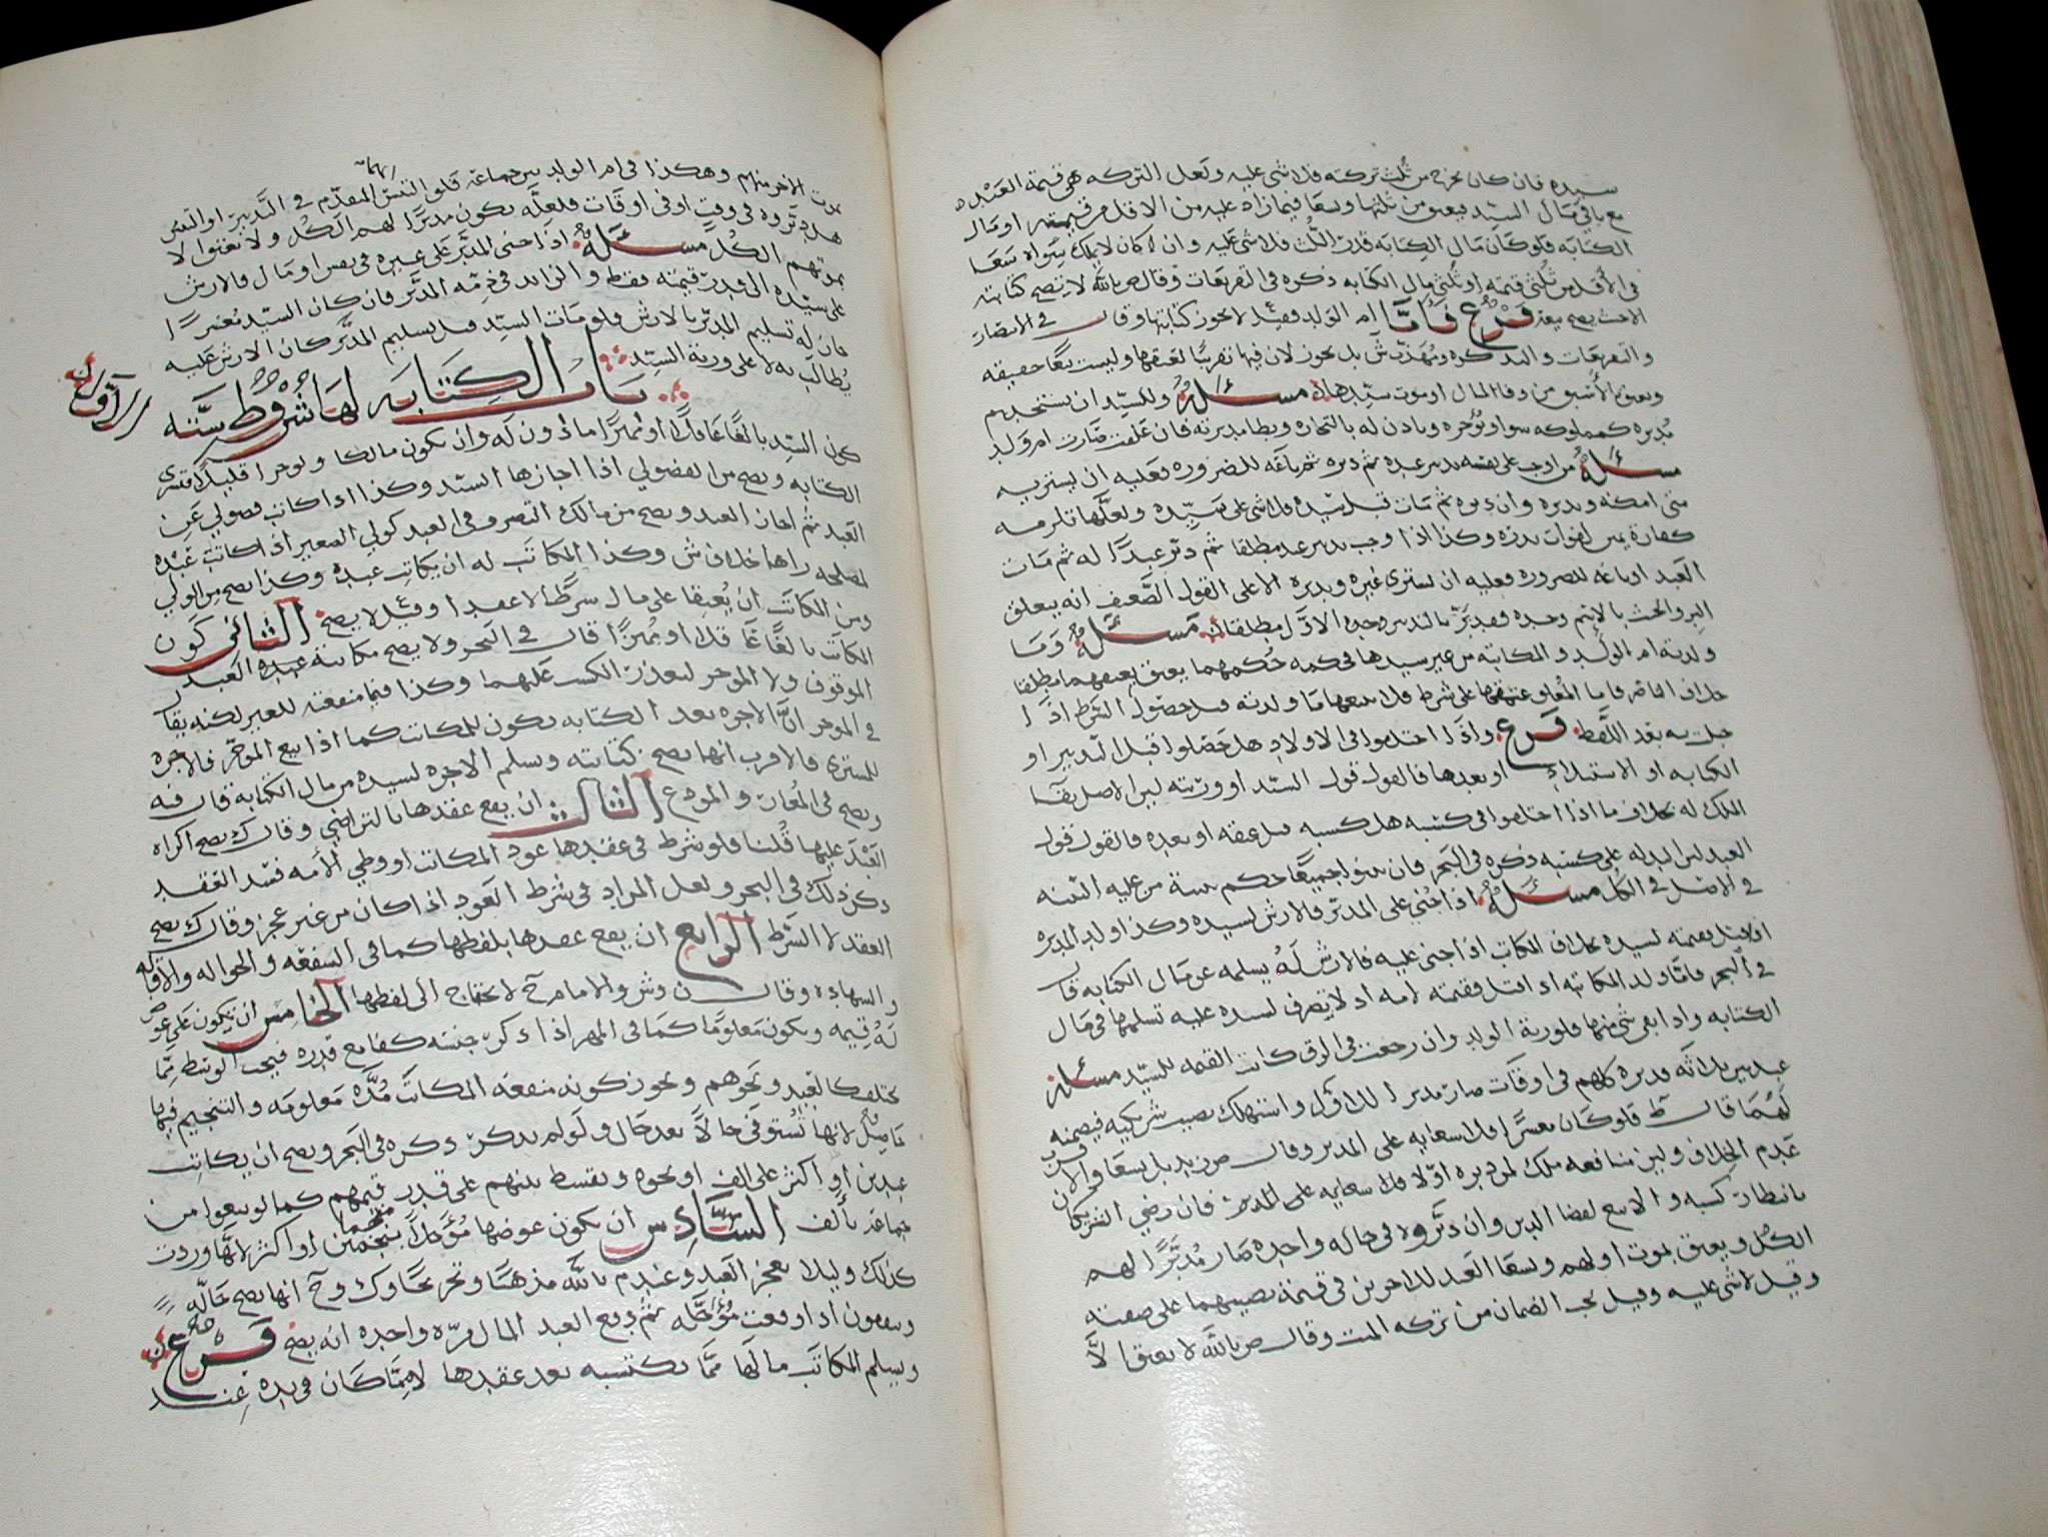 سيده فان كان يخرج من ثلث تركته فلا شي عليه ولعل التركه هي قيمة العبد
مع باقي مال السيد فيعتق من ثلثها ويسعا فيما زاد عليه من الاقل من قيمته او مال
الكتابه فلو كان مال الكتابه قدر الثلث فلا شي عليه وان كان لا يملك سواه سعا
في الأقل من ثلثي قيمته او ثلثي مال الكتابه ذكره في التفريعات وقال ص بالله لا تصح كتابته
فرع فاما ام الولد فقيل لا يجوز كتابتها وقال في الانتصار
والتفريعات والتذكره بل يجوز لان فيها تقريبا لعتقها وليست بيعا حقيقه
ويعتق بالأسبق من وفا المال او موت سيدها مسئله وللسيد ان يستخدم
مدبره كمملوكه سوا ويؤجره وياذن له بالتجاره ويطا مدبرته فان علقت صارت ام ولد
مسئله من اوجب على نفسه تدبير عبده ثم دبره ثم باعه للضروره فعليه ان يشتريه
متى امكنه ويدبره وان دبره ثم مات قبل سيده فلا شي على سيده ولعلها تلزمه
كفارة يمين لفوات نذره وكذا اذا وجب تدبير عبد مطلقا ثم دبر عبدا له ثم مات
العبد او باعه للضروره فعليه ان يشتري غيره ويدبره الا على القول الضعيف انه يتعلق
مسئله وما
ولدته ام الولد والمكاتبه من غير سيدها فحكمه حكمهما يعتق بعتقهما مطلقا
فاما المعلق عتقها على شرط فلا يتبعها ما ولدته قبل حصول الشرط اذا
حبلت به بعد اللفظ فرع واذا اختلفوا في الاولاد هل حصلوا قبل التدبير او
الكتابه او الاستيلاد او بعدها فالقول قول السيد او ورثته لان الاصل بقا
الملك له بخلاف ما اذا اختلفوا في كسبه هل كسبه قبل عتقه او بعده فالقول قول
العبد لثبوت اليد له على كسبه ذكره في البحر فان بينوا جميعا حكم ببينة من عليه البينه
في الاصل في الكل مسئله اذا جني على المدبر فالارش لسيده وكذا ولد المدبره
اذا قتل فقيمته لسيده بخلاف المكاتب اذا جني عليه فالارش له يسلمه عن مال الكتابه قال
في البحر فاما ولد المكاتبه اذا قتل فقيمته لامه اذ لا تصرف لسيده عليه تسلمها في مال
الكتابه واذا بقي شي منها فلورثة الولد وان رجعت في الرق كانت القيمه للسيد مسئله
عبد بين ثلاثه دبره كلهم في اوقات صار مدبرا للاول واستهلك نصيب شريكيه فيضمنه
لهما قال ط فلو كان معسرا فلا سعايه على المدبر وقال ص زيد بل يسعا والاقرب
عدم الخلاف ولان منافعه ملك لمن دبره اولا فلا سعايه على المدبر فان رضي الشريكان
بانتظار كسبه والا بيع لقضا الدين وان دبروه في حاله واحده صار مدبرا لهم
الكل ويعتق بموت اولهم ويسعا العبد للاخرين في قيمة نصيبهما على صفته
وقيل لا شي عليه وقيل يجب الضمان من تركه الميت وقال ص بالله لا يعتق الا
بموت الاخر منهم وهكذا في ام الولد بين جماعه فلو التبس المتقدم في التدبير او التبس
هل دبروه في وقت او في اوقات فلعله يكون مدبرا لهم الكل ولا يعتق الا
بموتهم الكل مسئله اذا جنى المدبر على غيره في نفس او مال فالارش
على سيده الى قدر قيمته فقط والزايد في ذمه المدبر فان كان السيد معسرا
كان له تسليم المدبر بالارش فلو مات السيد قبل تسليم المدبر كان الارش عليه
يطالب به لا على ورثة السيد
باب الكتابه لها شروط سته
الاول
كون السيد بالغا عاقلا او مميزا ماذون له وان يكون مالكا ولو حرا قليلا
الكتابه ويصح من الفضولي اذا اجازها السيد وكذا اذا كاتب فضولي عن
العبد ثم اجاز العبد ويصح من مالك التصرف في العبد كولي الصغير اذا كاتب عبده
لمصلحه راها خلاف ش وكذا المكاتب له ان يكاتب عبده وكذا يصح من الولي
ومن المكاتب ان يعتقا على مال شرطا لا عقدا وقيل لا يصح الثاني كون
المكاتب بالغا عاقلا او مميزا قال في البحر ولا يصح مكاتبة عبده العبد
الموقوف ولا المؤجر لتعذر الكسب عليهما وكذا فيما منفعته للغير لكنه يقال
في المؤجر ان الاجره بعد الكتابه تكون للمكاتب كما اذا بيع المؤجر فالاجره
للمشتري فالاقرب انها تصح كتابته ويسلم الاجره لسيده من مال الكتابة قال فيه
ويصح في المعار والمودع الثالث ان يقع عقدها بالتراضي وقال ك يصح اكراه
العبد عليها قلنا فلو شرط في عقدها عود المكاتب او وطي الأمه فسد العقد
ذكر ذلك في البحر ولعل المراد في شرط العود اذا كان من غير عجز وقال ك يصح
العقد لا الشرط الرابع ان يقع عقدها بلفظها كما في الشفعه والحواله والاقاله
والشهاده وقال ن وش والامام ح لا يحتاج الى لفظها الخامس ان يكون على عوض
له قيمه ويكون معلوما كما في المهر اذا ذكر جنسه كفا مع قدره فيجب الوسط مما
يختلف كالعبد ونحوهم ويجوز كونه منفعه المكاتب مده معلومه والتنجيم فيها
حاصل لانها تستوفى حالا بعد حال ولو لم يذكر ذكره في البحر ويصح ان يكاتب
عبدين او اكثر على الف او نحوه ويقسط بينهم على قدر قيمهم كما لو بيعوا من
جماعه بألف السادس ان يكون عوضها مؤجلا منجما بنجمين او اكثر لانها وردت
كذلك وليلا يعجز العبد وعند م بالله مذهبا وتخريجا وك وح انها تصح حاله
ويقولون اذا وقعت مؤجله ثم دفع العبد المال مره واحده انه يصح فرع
ويسلم المكاتب مالها مما يكتسبه بعد عقدها لا مما كان في يده عند